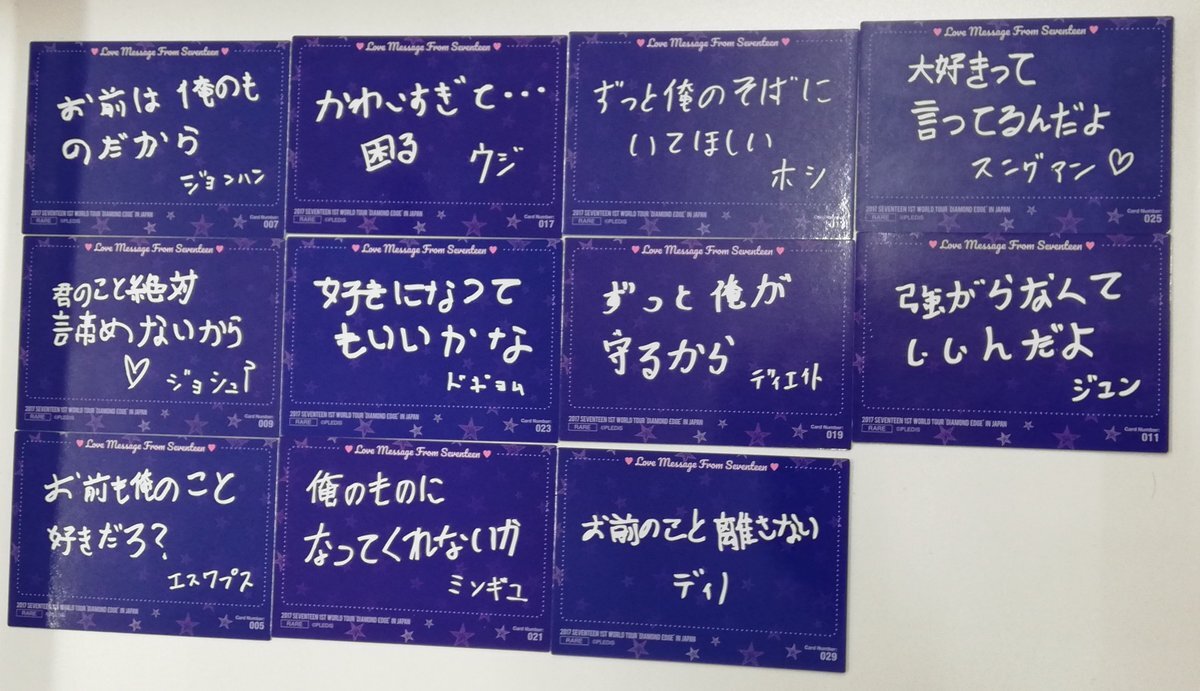 Love Message From Seventeen
お前は俺のも
のだから
ジョンハン
2017 SEVENTEEN 1ST WORLD TOUR 'DIAMOND EDGE' IN JAPAN
RARE ©PLEDIS
Card Number:
007
Love Message From Seventeen
かわいすぎて・・・
困る
ウジ
2017 SEVENTEEN 1ST WORLD TOUR 'DIAMOND EDGE' IN JAPAN
RARE ©PLEDIS
Card Number:
017
Love Message From Seventeen
ずっと俺のそばに
いてほしい
ホシ
2017 SEVENTEEN 1ST WORLD TOUR 'DIAMOND EDGE' IN JAPAN
RARE ©PLEDIS
Love Message From Seventeen
大好きって
言ってるんだよ
スングァン♡
2017 SEVENTEEN 1ST WORLD TOUR 'DIAMOND EDGE' IN JAPAN
RARE ©PLEDIS
Card Number:
025
Love Message From Seventeen
君のこと絶対
諦めないから
♡ ジョシュア
2017 SEVENTEEN 1ST WORLD TOUR 'DIAMOND EDGE' IN JAPAN
RARE ©PLEDIS
Card Number:
009
Love Message From Seventeen
好きになって
もいいかな
ドギョム
2017 SEVENTEEN 1ST WORLD TOUR 'DIAMOND EDGE' IN JAPAN
RARE ©PLEDIS
Card Number:
023
Love Message From Seventeen
ずっと俺が
守るから
ディエイト
2017 SEVENTEEN 1ST WORLD TOUR 'DIAMOND EDGE' IN JAPAN
RARE ©PLEDIS
Card Number:
019
Love Message From Seventeen
強がらなくて
いいんだよ
ジュン
2017 SEVENTEEN 1ST WORLD TOUR 'DIAMOND EDGE' IN JAPAN
RARE ©PLEDIS
Card Number:
011
Love Message From Seventeen
お前も俺のこと
好きだろ?
エスクプス
2017 SEVENTEEN 1ST WORLD TOUR 'DIAMOND EDGE' IN JAPAN
RARE ©PLEDIS
Card Number:
005
Love Message From Seventeen
俺のものに
なってくれないか
ミンギュ
2017 SEVENTEEN 1ST WORLD TOUR 'DIAMOND EDGE' IN JAPAN
RARE ©PLEDIS
Card Number:
021
Love Message From Seventeen
お前のこと離さない
ディノ
2017 SEVENTEEN 1ST WORLD TOUR 'DIAMOND EDGE' IN JAPAN
RARE ©PLEDIS
Card Number:
029